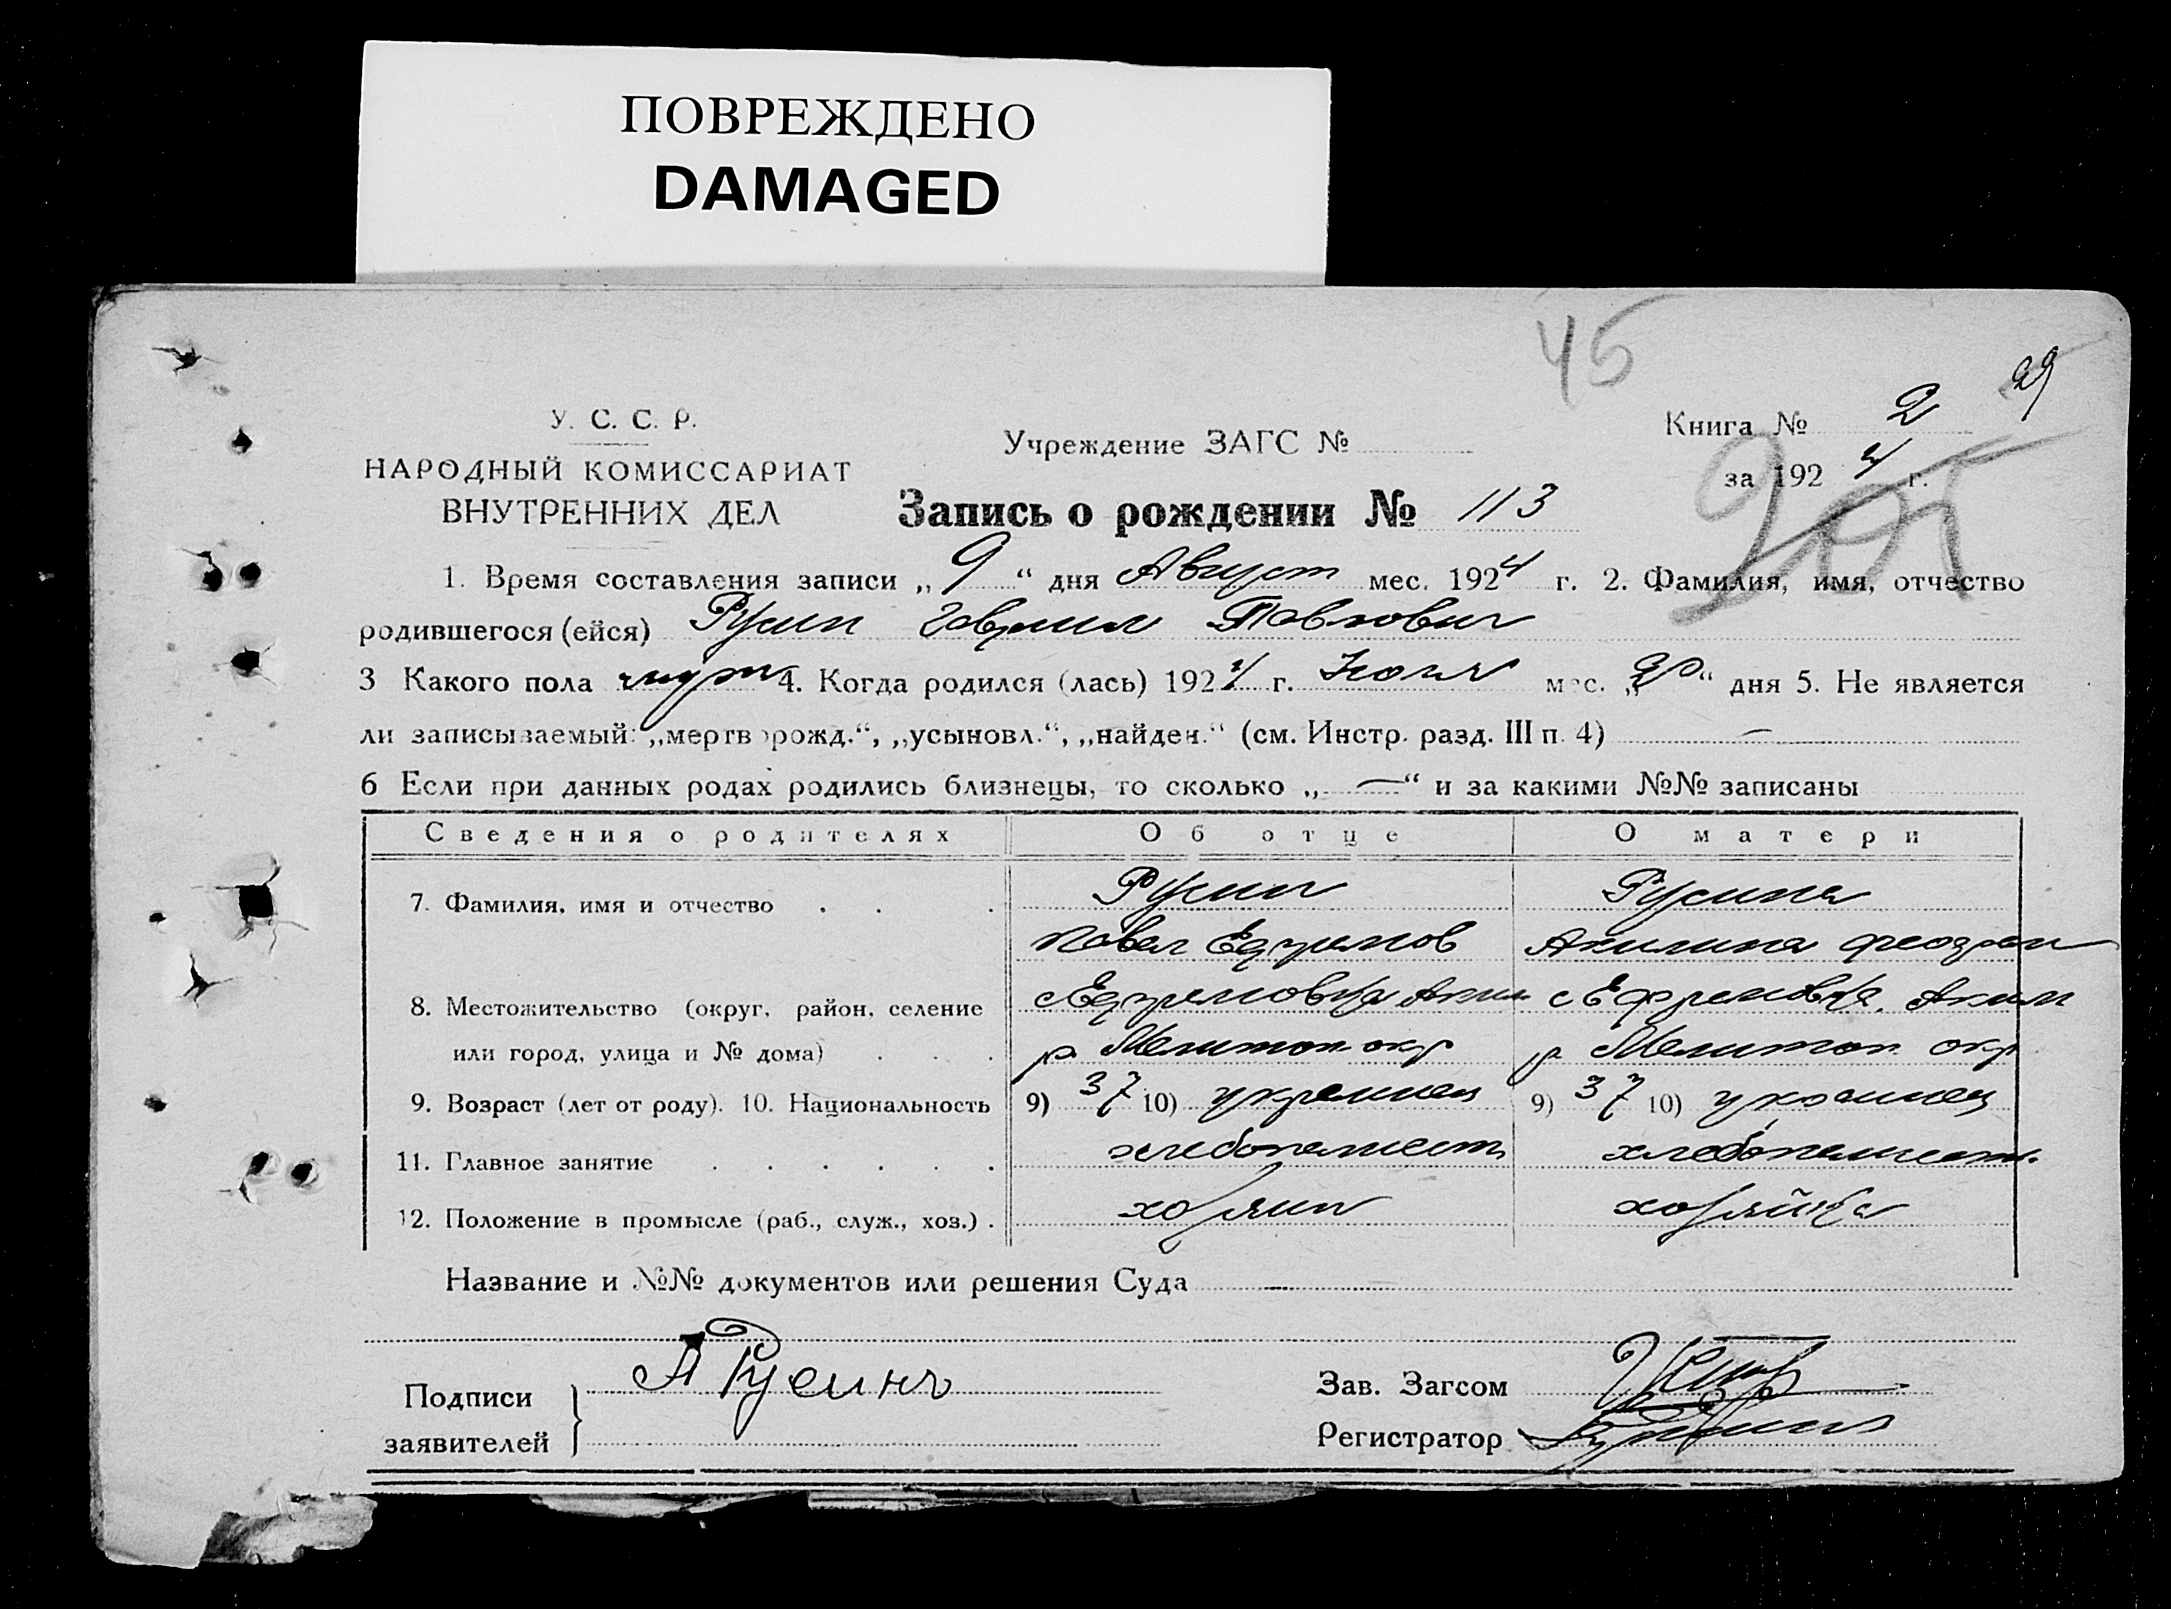 ПОВРЕЖДЕНО
DAMAGED
45
29
У. С. С. Р.
НАРОДНЫЙ КОМИССАРИАТ
ВНУТРЕННИХ ДЕЛ
Учреждение ЗАГС №
Книга № 2
за 1924 г.
Запись о рождении № 113
1. Время составления записи „9“ дня Август мес. 1924 г. 2. Фамилия, имя, отчество
родившегося (ейся) Русин Гаврил Павлович
3 Какого пола муж 4. Когда родился (лась) 1924 г. Июля мес. „20“ дня 5. Не является
ли записываемый: „мертворожд.“, „усыновл.“, „найден.“ (см. Инстр. разд. III п. 4) —
6 Если при данных родах родились близнецы, то сколько „—“ и за какими №№ записаны
Сведения о родителях Об отце О матери
7. Фамилия, имя и отчество . . . Русин Русина
Павел Ефремов Акилина Феодосеи
8. Местожительство (округ, район, селение с Ефремовка Аким с Ефремовка. Аким
или город, улица и № дома) . . . р. Мелитоп. окр р Мелитоп. окр
9. Возраст (лет от роду). 10. Национальность 9) 37 10) украинец 9) 37 10) украинец
11. Главное занятие . . . . . . хлебопашеств хлебопашеств.
12. Положение в промысле (раб., служ., хоз.) . хозяин хозяйка
Название и №№ документов или решения Суда —
Подписи
заявителей
Русинъ
Зав. Загсом
Регистратор